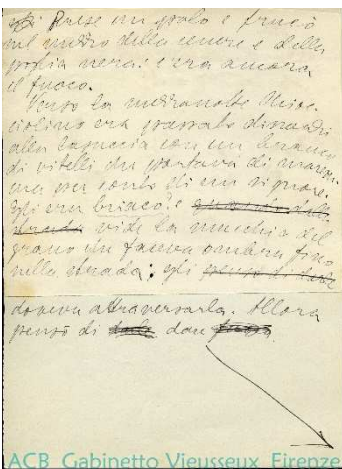 prese un palo e frucò
nel mezzo della cenere e della
paglia nera: c'era ancora
il fuoco.
Verso la mezzanotte
ciolino era passato dinnanzi
alla casaccia con un branco
di vitelli che portava di marem-
ma per conto di un signore.
Egli era briaco: e
vide la mucchia del
grano che faceva ombra fino
nella strada: egli
doveva attraversarla. Allora
pensò di
ACB Gabinetto Vieusseux Firenze